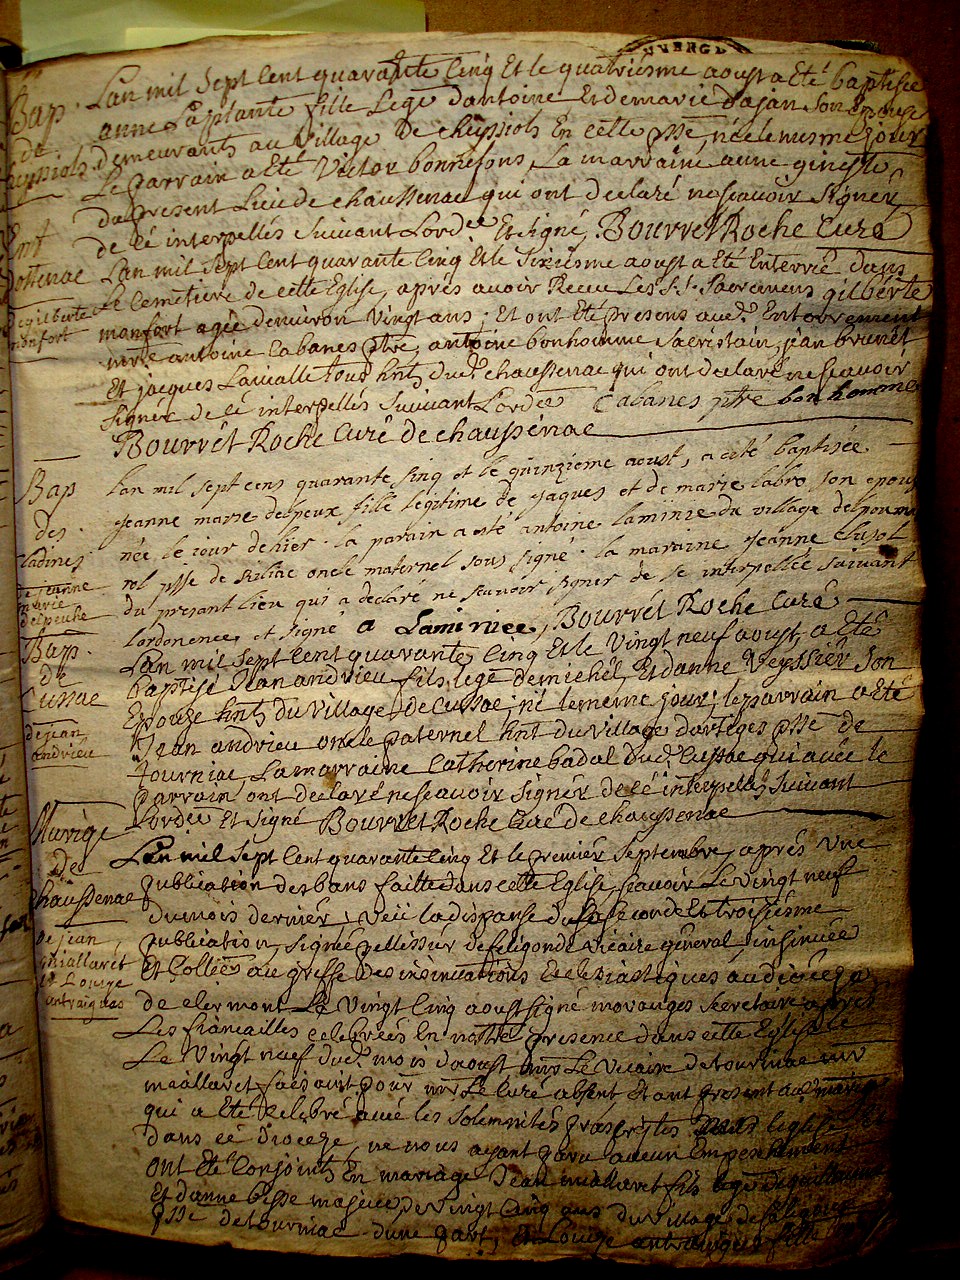 UVERG
Bap.
de
Lan mil Sept Cent quarante Cinq Et le quatriesme aoust a Eté baptisée
anne Laplante fille Lege dantoine Et de marie dajan Son Epouse
demeurants au Village de cheyssiols En cette psse, née le mesme jour
Le parrain a Eté Victor bonnefons, La marraine anne gineste
du present Lieu de chaussenac qui ont declaré ne scavoir Signer
de cé interpellés Suivant Lordce Et Signé, Bourret Roche Curé
Lan mil Sept Cent quarante Cinq Et le Sixiesme aoust a Eté Enterrée dans
Le Cemetiere de cette Eglise, aprés avoir Receu Les Sts Sacremens gilberte
manfort agée denviron Vingt ans; Et ont Eté presens aud. Enterrement
mre antoine Cabanes ptre, antoine bonhomme Sacristain, jean brunet
Et jacques Lavialle tous hnts dud. chaussenac qui ont declaré ne scavoir
Signer de cé interpellés Suivant Lordce Cabanes ptre bonhomme
Bourret Roche Curé de chaussenac
Bap
des
Ladines
de jeanne
marie
delpeuhe
lan mil sept cens quarante sinq et le quinzieme aoust, a eté baptisée
jeanne marie delpeux fille légitime de jaques et de marie labro son epouse
née le jour de hier. la parain a eté antoine laminie du village
psse de oncle maternel sous signé. la maraine jeanne
du presant lieu qui a declaré ne scavoir signer de se interpellée suivant
lordonence, et signé a Laminiee, Bourret Roche Curé
Bap.
de
Cussac
de jean
andrieu
Lan mil Sept Cent quarante Cinq Et le Vingt neuf aoust, a Eté
baptisé Jean andrieu, fils lege de michel Et danne Veyssier Son
Epouze hnts du Village de Cussac, né le meme jour; le parrain a Eté
Jean andrieu oncle paternel hnt du Village dartiges psse de
Tourniac, La marraine Catherine badal dud. Cussac qui avec le
parrain ont declaré ne scavoir Signer de cé interpellés Suivant
Lordce Et Signé Bourret Roche Curé de chaussenac
Mariage
de
Chaussenac
de jean
mialaret
et Louize
antraigues
Lan mil Sept Cent quarante Cinq Et le premier Septembre, aprés Une
publication des bans faitte dans cette Eglise, scavoir Le Vingt neuf
du mois dernier, Veü la dispanse du Seconde Et troisiéme
publication, Signée pellissier de feligonde Vicaire général, insinuée
Et Collée au greffe des insinuations Ecclesiastiques du dioceze
de clermont Le Vingt Cinq aoust Signé moranges Secretaire, aprés
Les fiancailles celebrées En nottre presence dans cette Eglise
Le Vingt neuf dud. mois daoust mre Le Vicaire de tourniac
mialaret faisant pour mr Le Curé absent Et ant present au mariage
qui a Eté Celebré avec les Solemnités prescrites l'eglise
dans cé Dioceze, ne nous ayant paru aucun Empeschement
ont Eté Conjoints En mariage Jean mialaret fils agé de
Et danne besse majeur de Vingt Cinq ans du Village de
psse de tourniac dune part, Et Louize antraigues fille